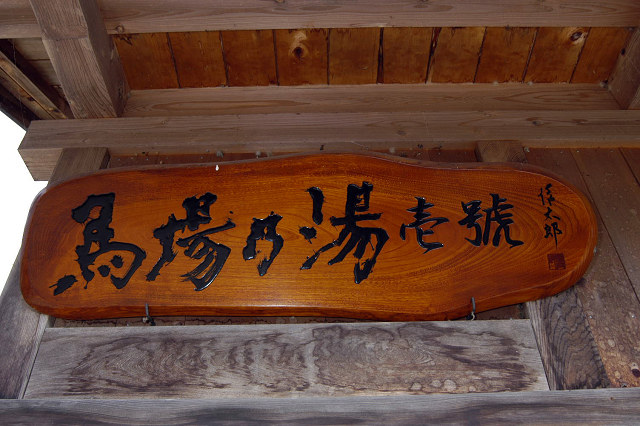 馬場乃湯壱號
信太郎